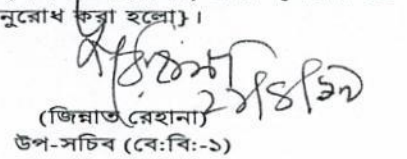 নুরোধ করা হলো}।
(জিন্নাত রেহানা)
উপ-সচিব (বে:বি:-১)